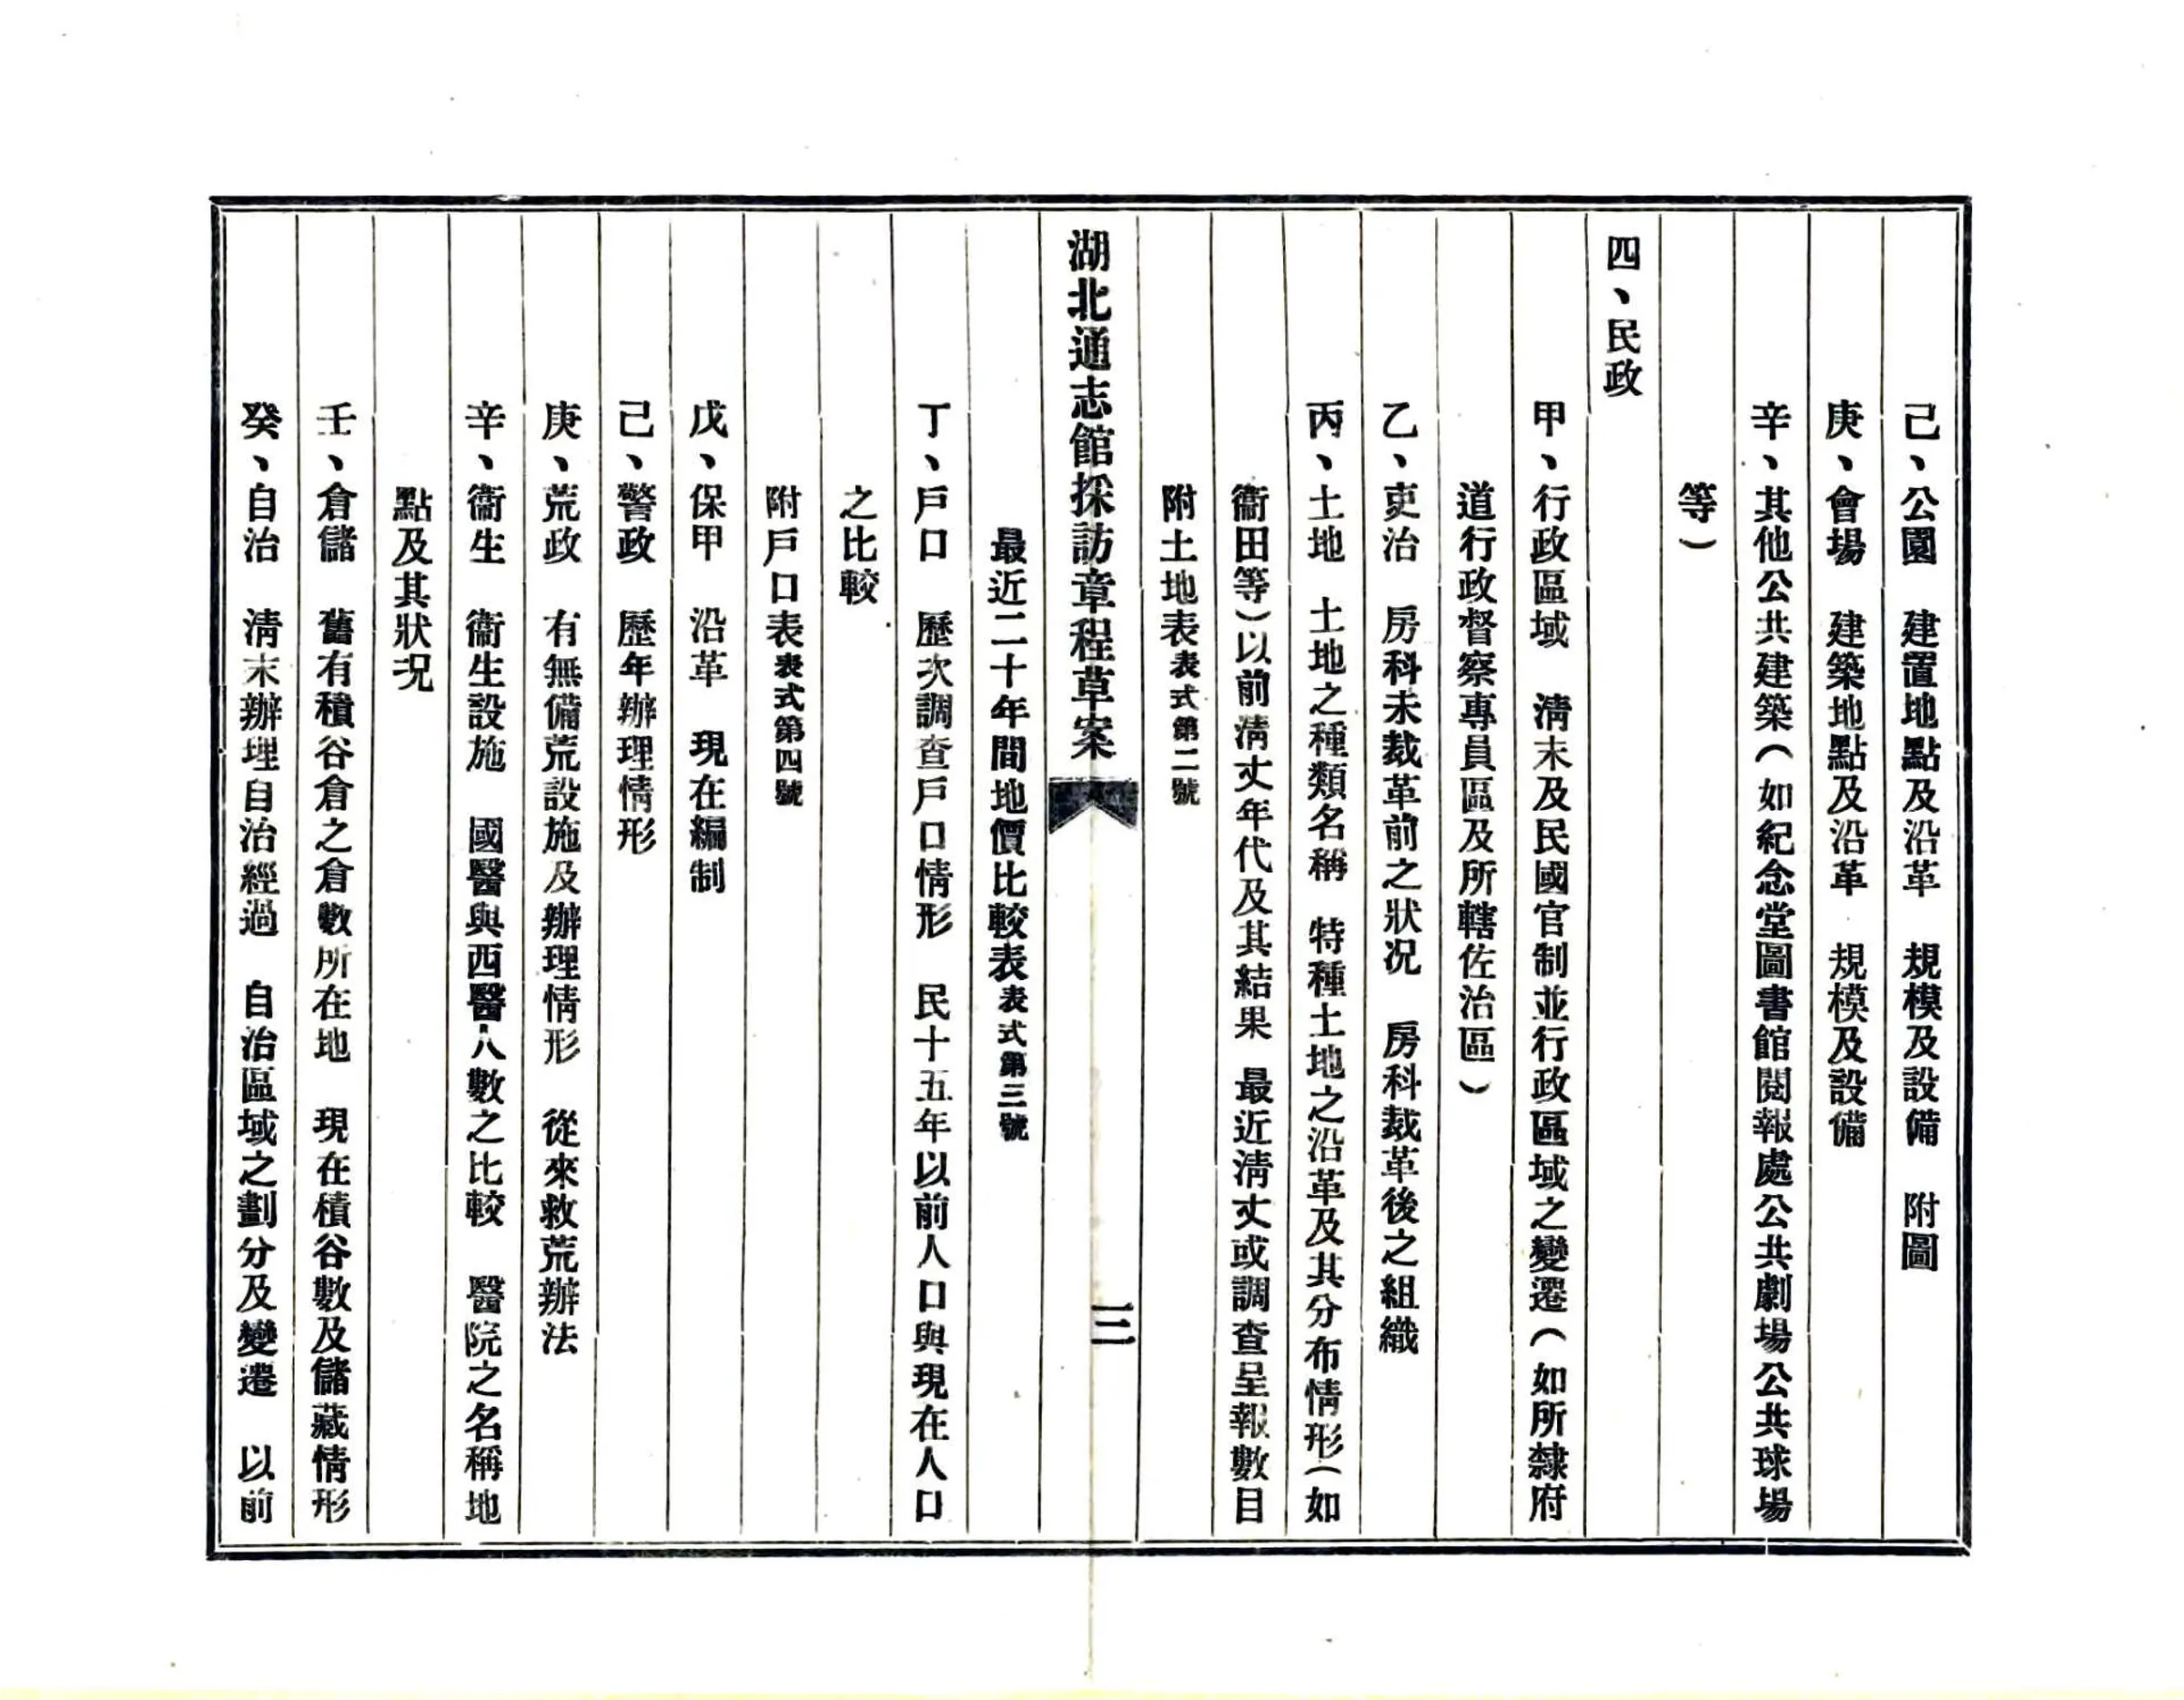 己、公園　建置地點及沿革　規模及設備　附圖
庚、會場　建築地點及沿革　規模及設備
辛、其他公共建築（如紀念堂圖書館閱報處公共劇場公共球場
等）
四、民政
甲、行政區域　淸末及民國官制並行政區域之變遷（如所隸府
道行政督察專員區及所轄佐治區）
乙、吏治　房科未裁革前之狀況　房科裁革後之組織
丙、土地　土地之種類名稱　特種土地之沿革及其分布情形（如
衞田等）以前淸丈年代及其結果　最近淸丈或調查呈報數目
附土地表表式第二號
湖北通志館採訪章程草案
三
最近二十年間地價比較表表式第三號
丁、戶口　歷次調查戶口情形　民十五年以前人口與現在人口
之比較
附戶口表表式第四號
戊、保甲　沿革　現在編制
己、警政　歷年辦理情形
庚、荒政　有無備荒設施及辦理情形　從來救荒辦法
辛、衞生　衞生設施　國醫與西醫人數之比較　醫院之名稱地
點及其狀況
壬、倉儲　舊有積谷倉之倉數所在地　現在積谷數及儲藏情形
癸、自治　淸末辦理自治經過　自治區域之劃分及變遷　以前